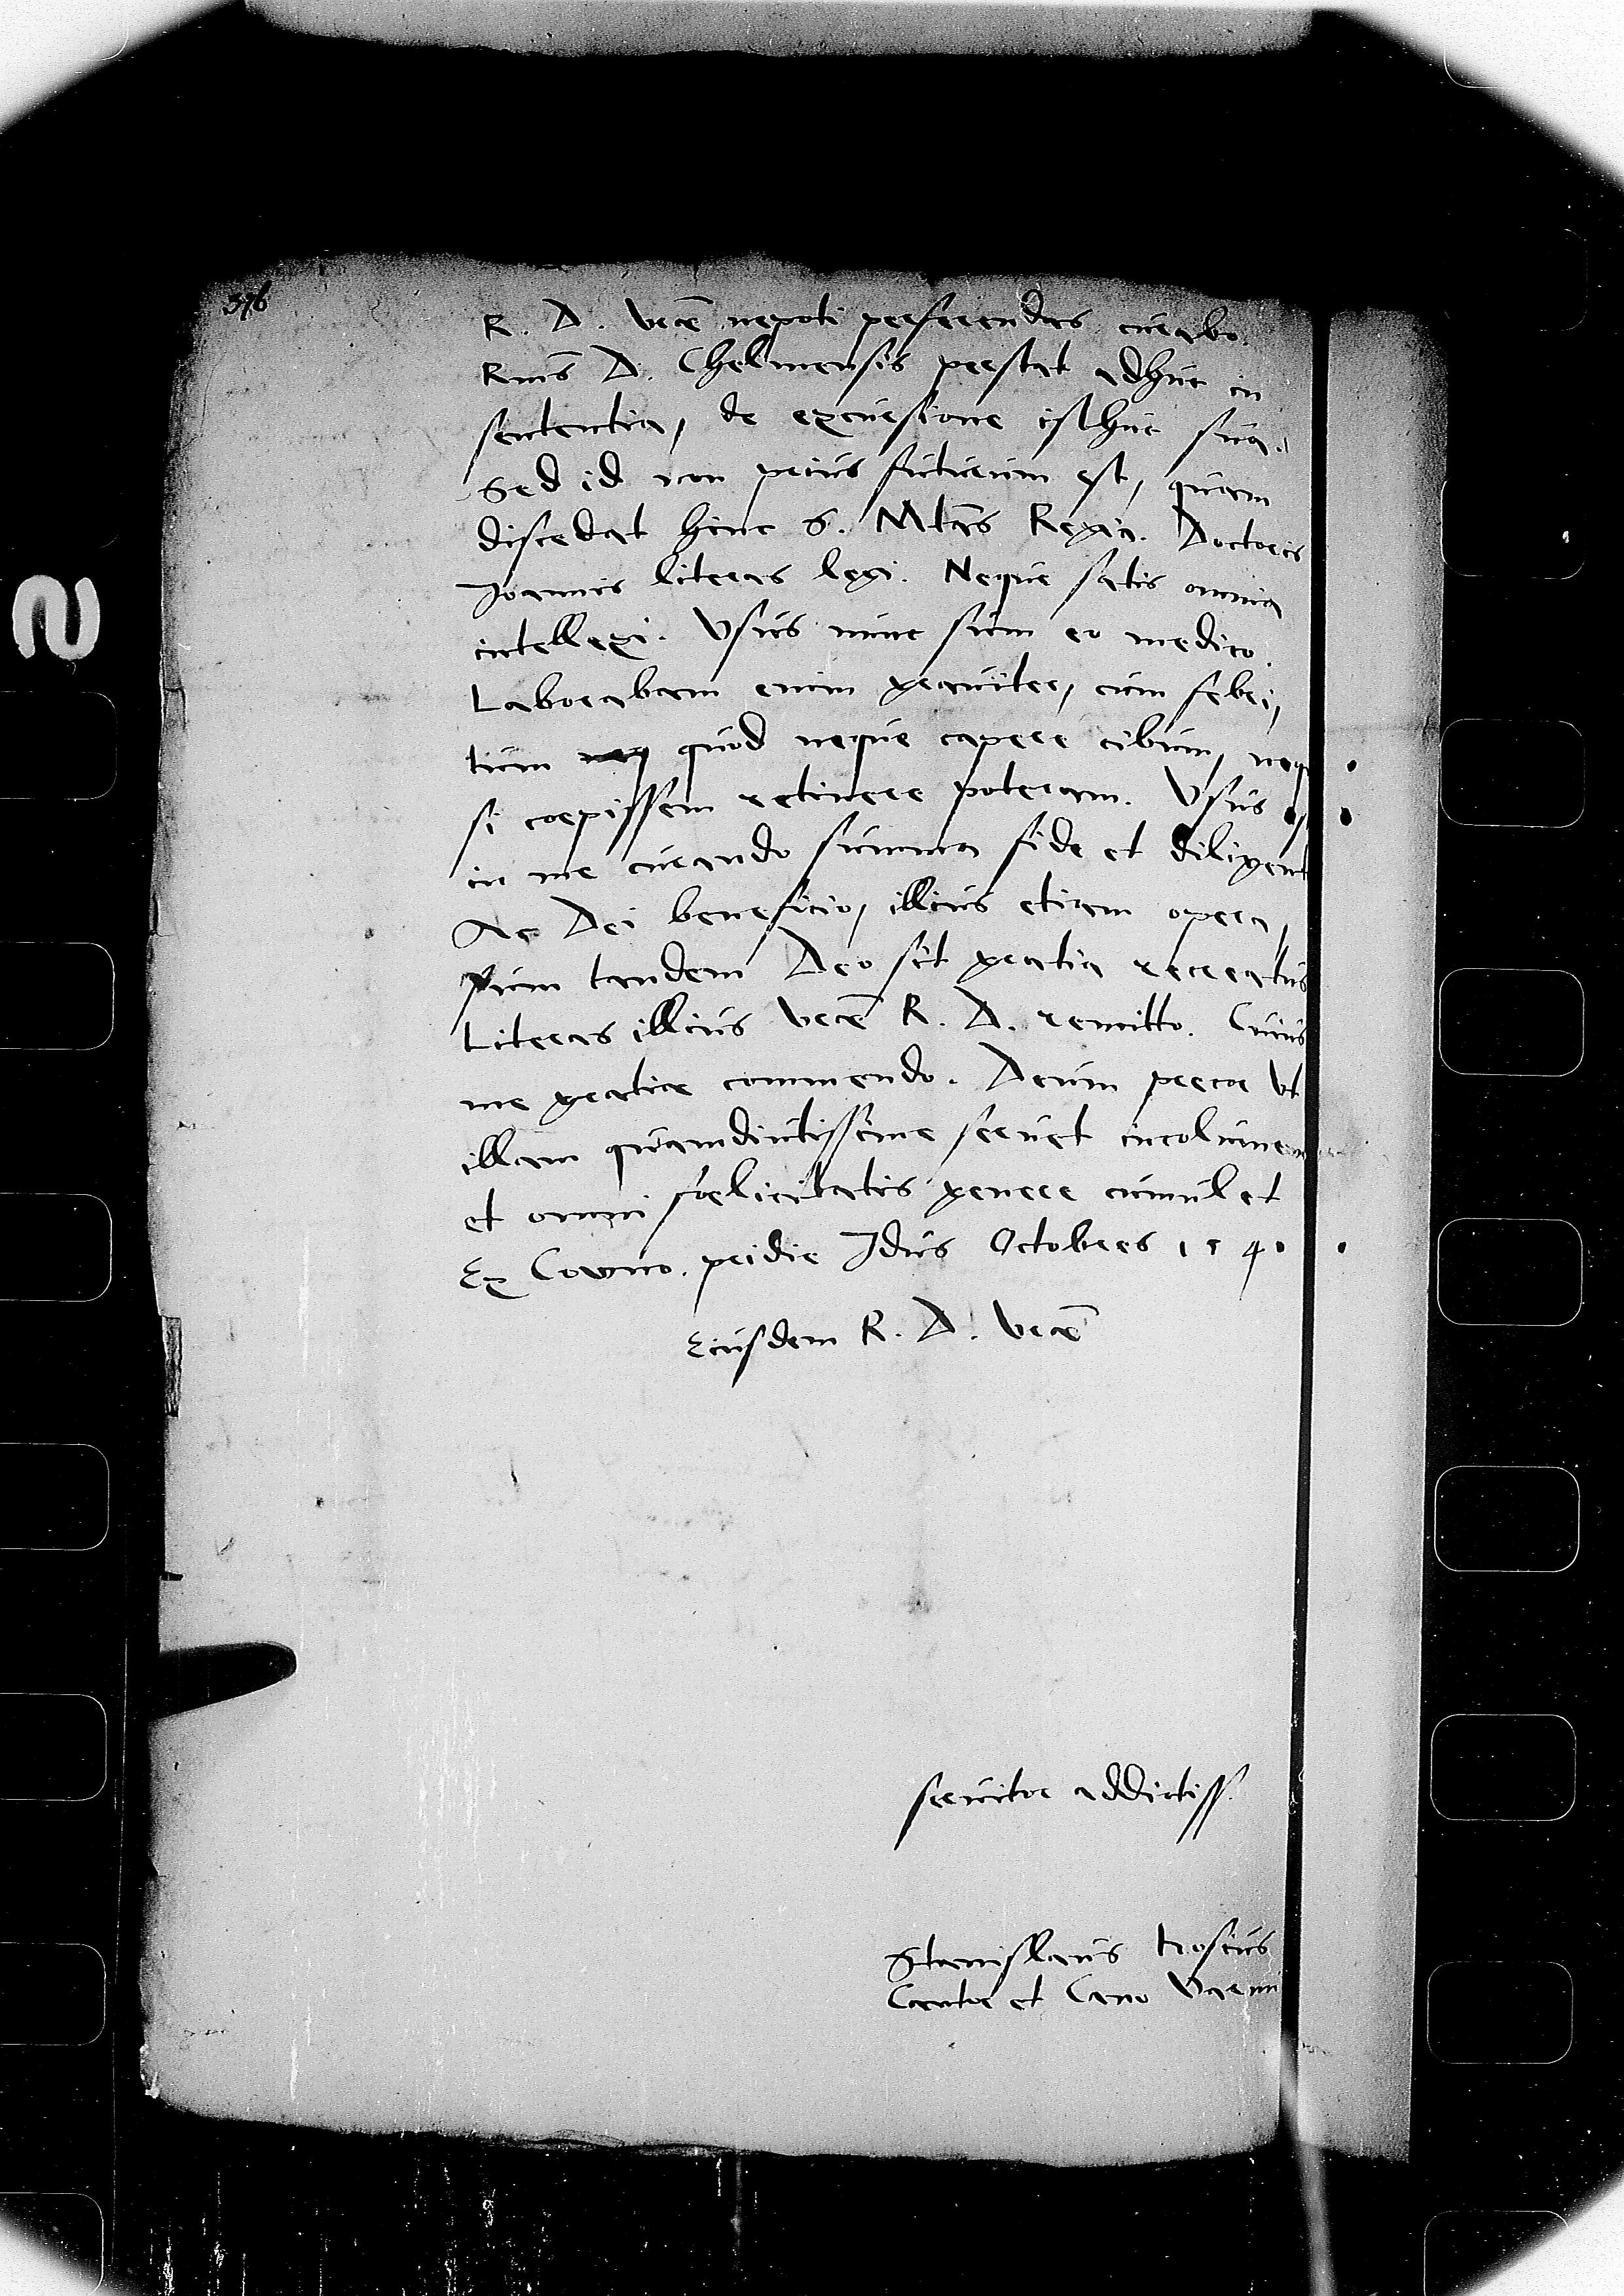 376
R. D. vrae nepoti perferendas curabo.
Rmus D. Chelmensis perstat adhuc in
sententia, de excursione isthuc sua.
Sed id non prius futurum est, quam
discedat hinc S. Mtas Regia. Doctoris
Joannis literas legi. Neque satis omnia
intellexi. Usus nunc sum eo medico.
Laborabam enim graviter, cum febri,
tum quod neque capere cibum, neque
si coepissem retinere poteram. Usus est
in me curando summa fide et diligent
Ac Dei beneficio, illius etiam opera,
sum tandem Deo sit gratia recreatus
Literas illius vrae R. D. remitto. Cuius
me gratiae commendo. Deum precor ut
illam quamdiutissime servet incolumem
et omni foelicitatis genere cumulet
Ex Cowno. pridie Idus Octobres 1540
Eiusdem R. D. vrae
servitor addictiss.
Stanislaus Hosius
Cantor et Cano Varmi
2